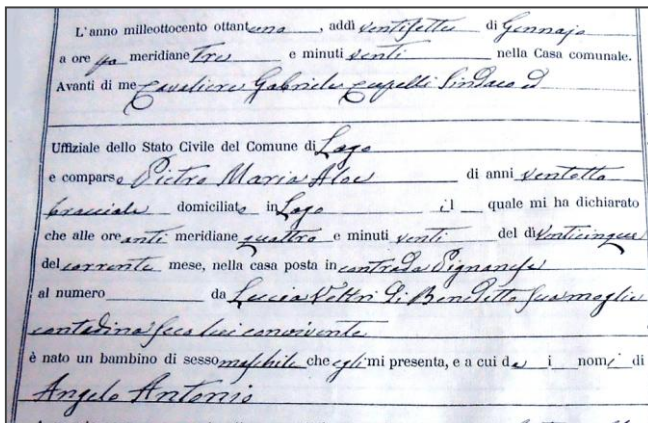 L'anno milleottocento ottantuno, addì ventisette di Gennajo
a ore po meridiane Tre e minuti venti nella Casa comunale.
Avanti di me Cavaliere Gabriele Cupelli Sindaco ed
Uffiziale dello Stato Civile del Comune di Lago
e comparso Pietro Maria Aloe di anni ventotto
bracciale domiciliato in Lago il quale mi ha dichiarato
che alle ore anti meridiane quattro e minuti venti del dì venticinque
del corrente mese, nella casa posta in contrada
al numero da Luccia Veltri di Benedetto sua moglie
contadina seco lui convivente
è nato un bambino di sesso maschile che egli mi presenta, e a cui da i nomi di
Angelo Antonio